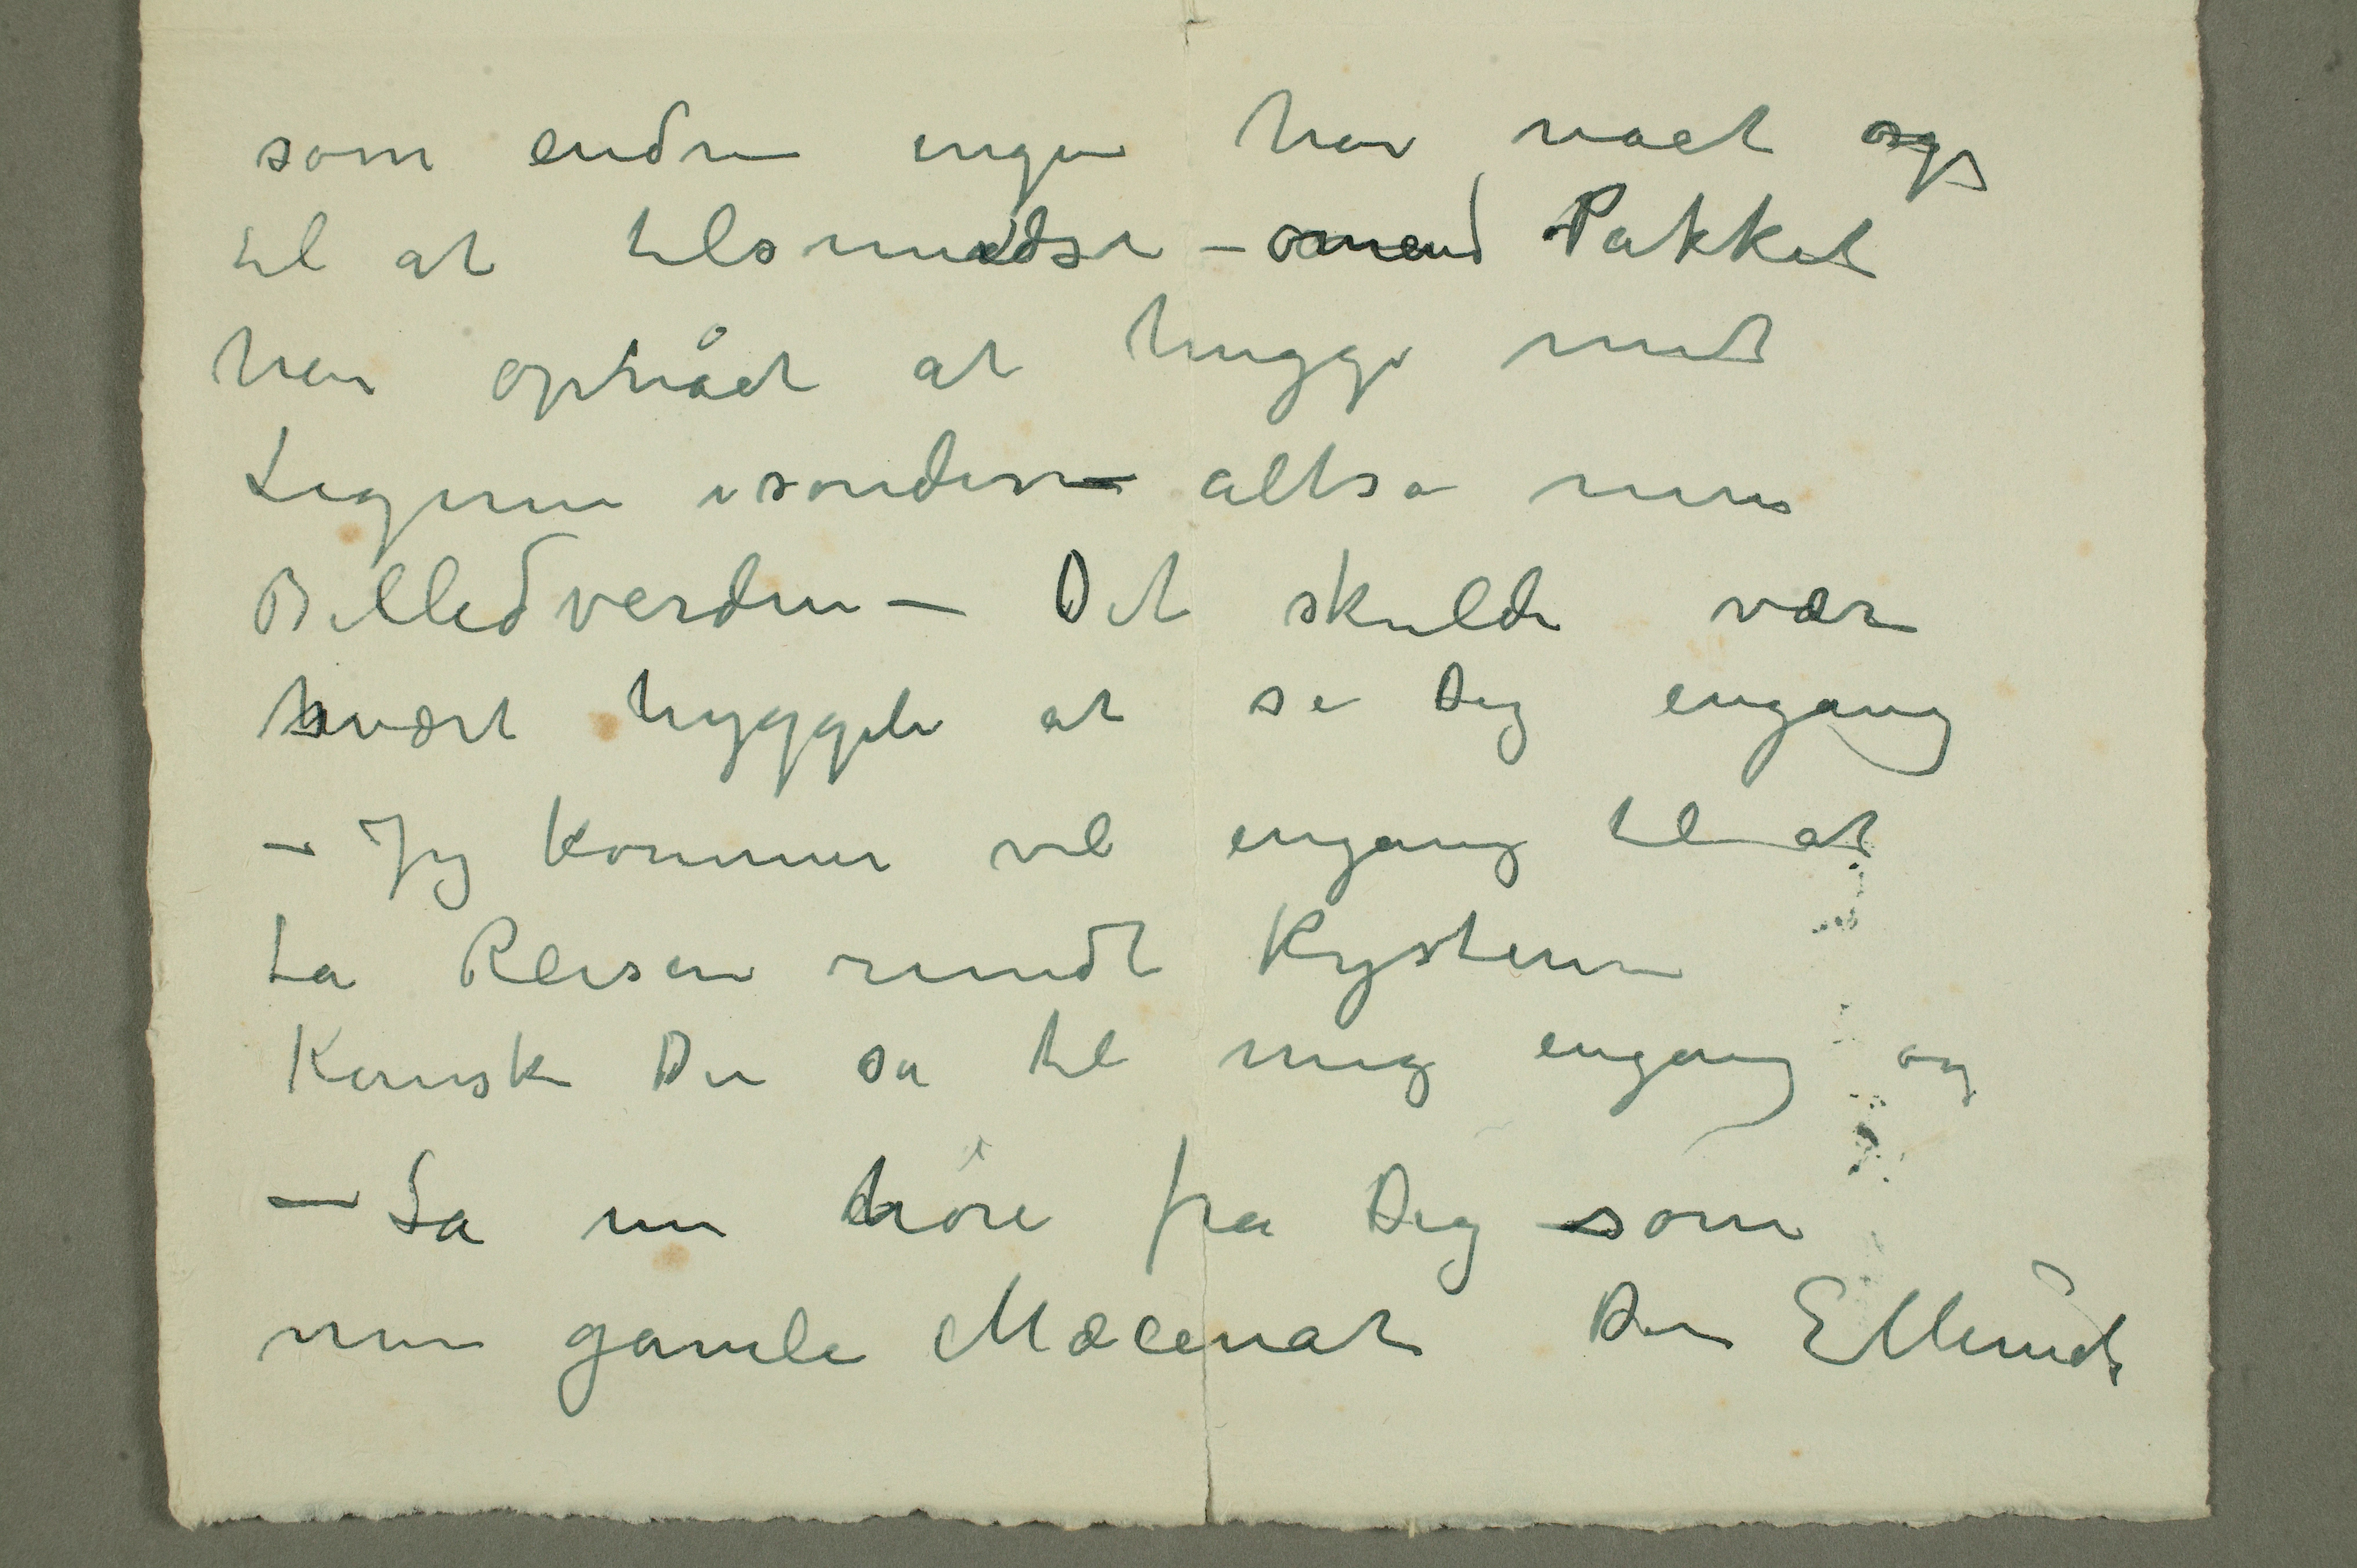 som endnu ingen har nået op
til at tilsmudse – omend Pakket
har opnået at hugge mit
Legeme isønder – altså min
Billedverden – Det skulde være
svært hyggeli at se Dig engang
– Jeg kommer vel engang til at
ta Reisen rundt Kysten
Kanske Du så til mig engang og
– La mig høre fra Dig som
min gamle Mæcenat Din E Munch